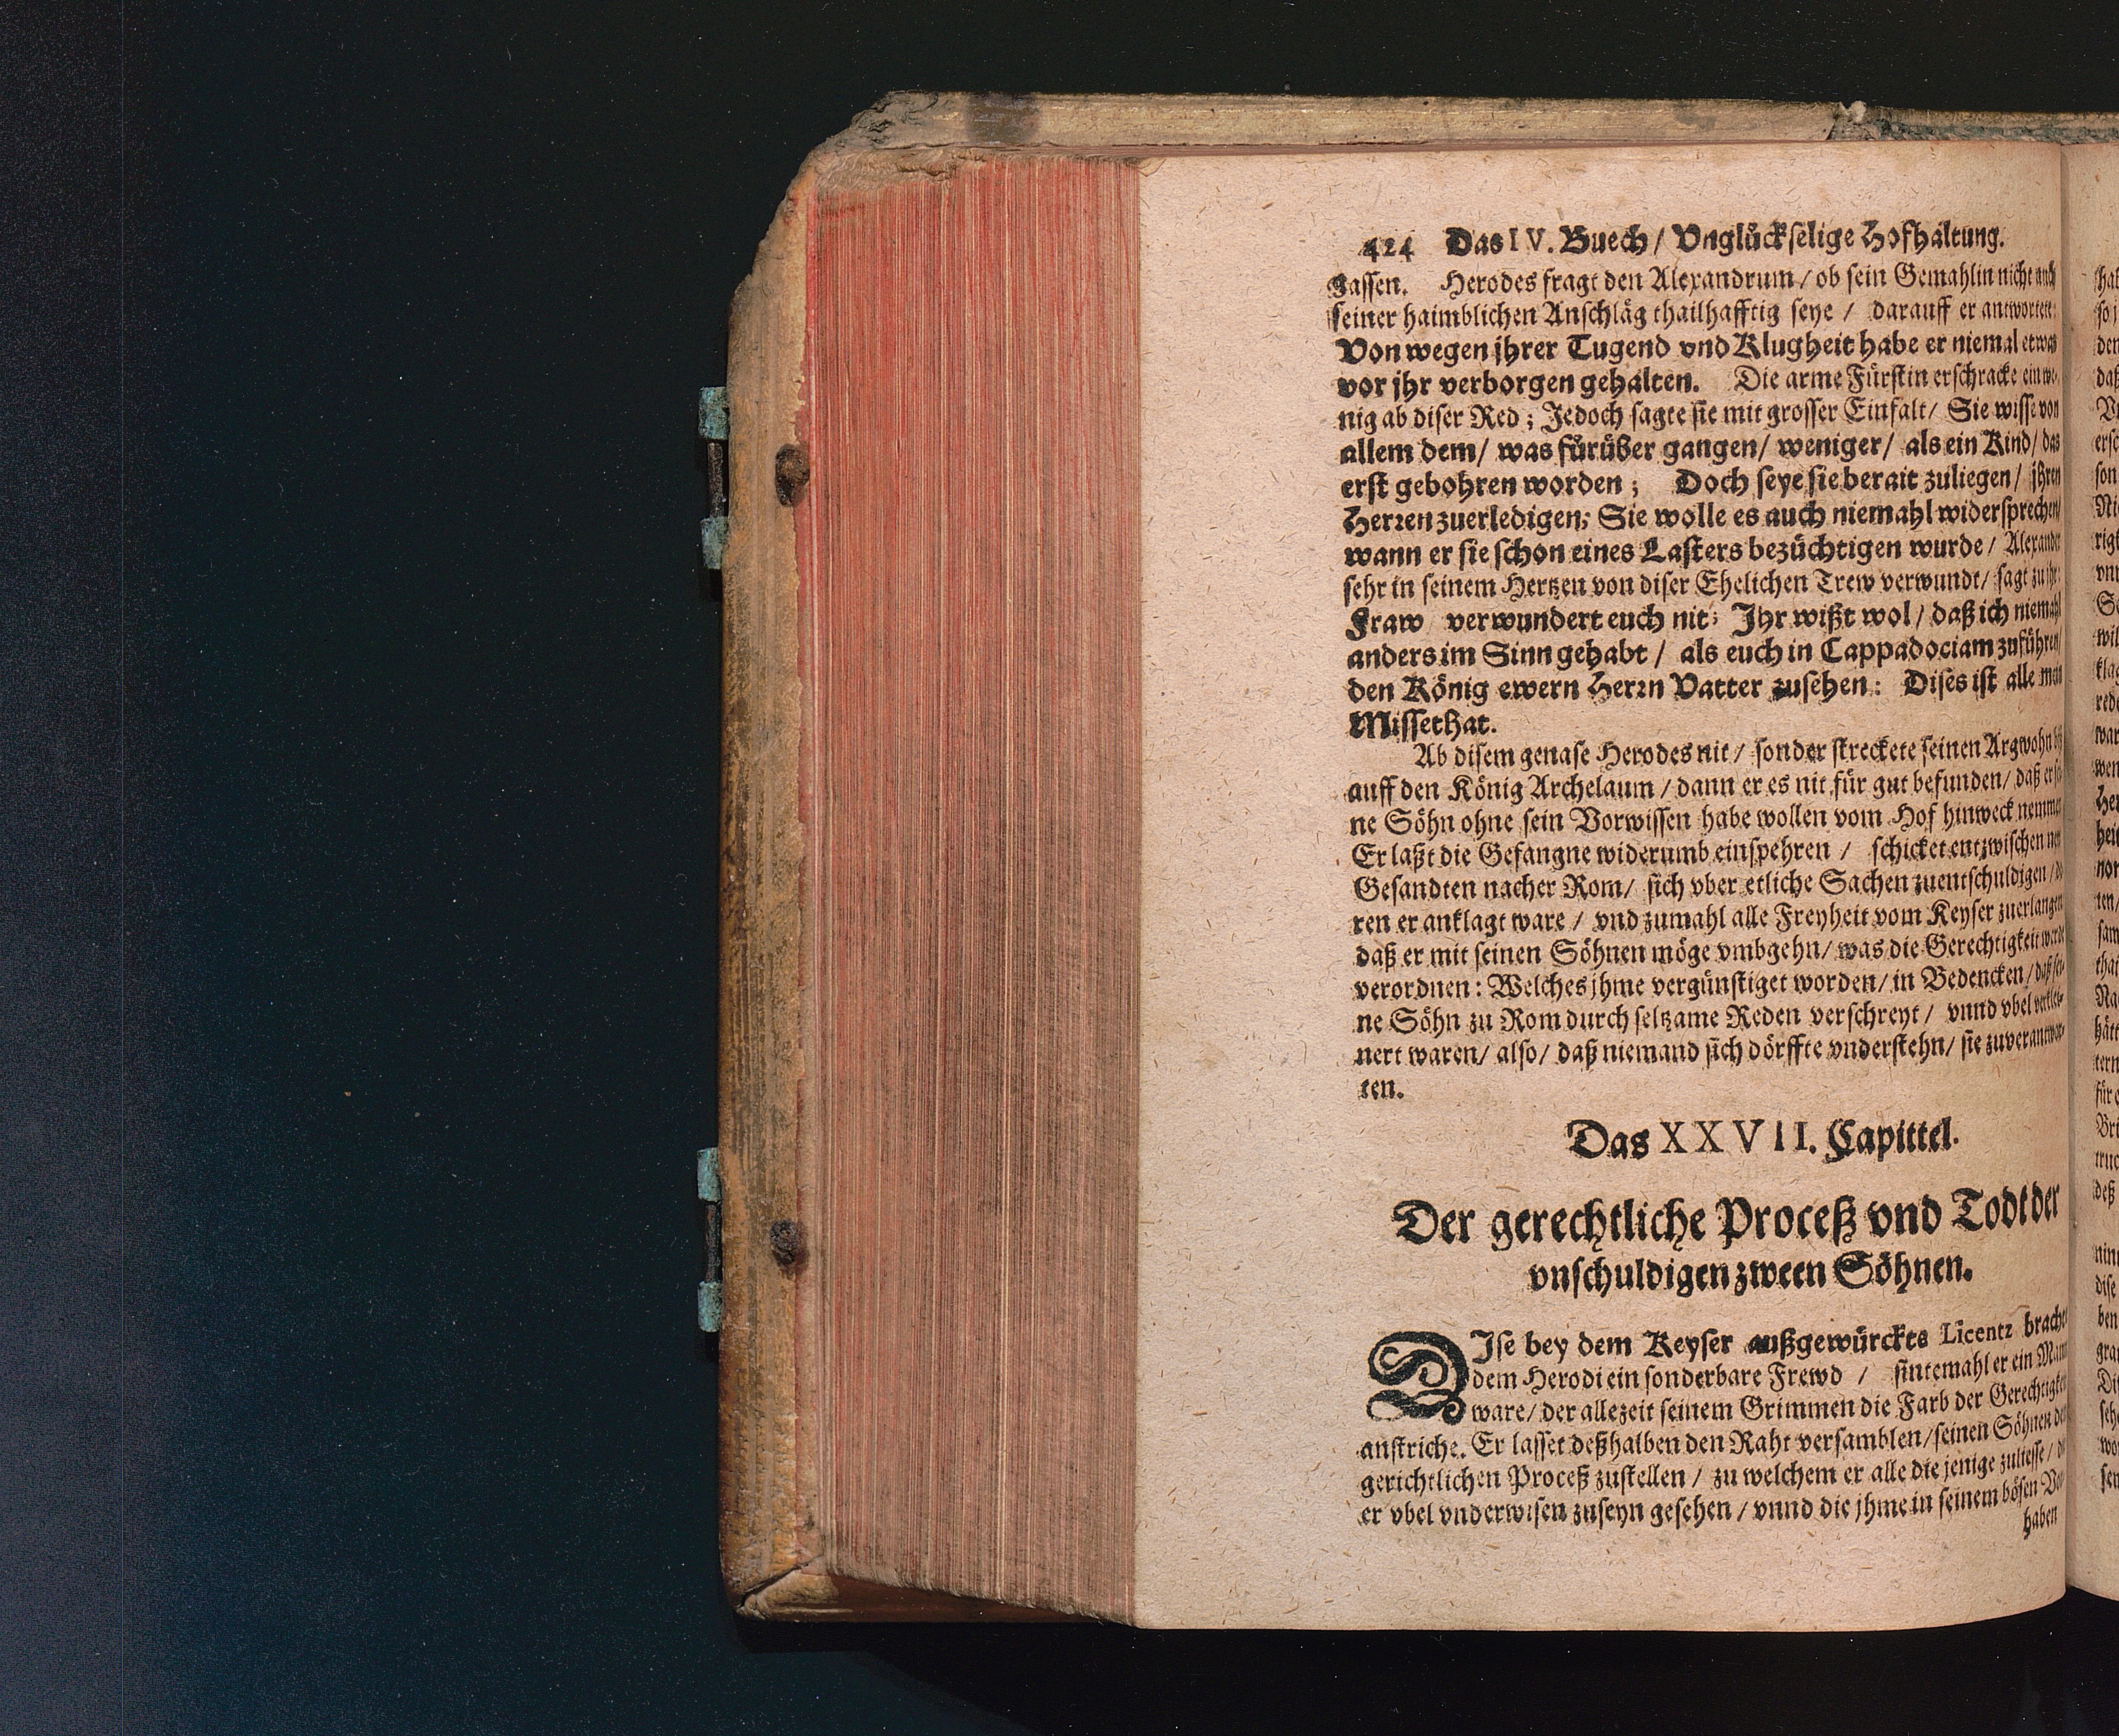 424 Das IV. Buech / Vnglückſelige Hofhaltung.
gaſſen. Herodes fragt den Alexandrum / ob ſein Gemahlin nicht auch
ſeiner haimblichen Anſchläg thailhafftig ſeye / darauff er antwortete:
Von wegen jhrer Tugend vnd Klugheit habe er niemal etwas
vor jhr verborgen gehalten. Die arme Fürſtin erſchracke ein we-
nig ab diſer Red; Jedoch ſagte ſie mit groſſer Einfalt / Sie wiſſe von
allem dem / was fürüber gangen / weniger / als ein Kind / das
erſt gebohren worden; Doch ſeye ſie berait zuliegen / jhren
Herꝛen zuerledigen; Sie wolle es auch niemahl widerſprechen /
wann er ſie ſchon eines Laſters bezüchtigen wurde / Alexander
ſehr in ſeinem Hertzen von diſer Ehelichen Trew verwundt / ſagt zu jhr:
Fraw verwundert euch nit: Jhr wißt wol / daß ich niemahl
anders im Sinn gehabt / als euch in Cappadociam zuführen /
den König ewern Herꝛn Vatter zuſehen: Diſes iſt alle mein
Miſſethat.
Ab diſem genaſe Herodes nit / ſonder ſtreckete ſeinen Argwohn
auff den König Archelaum / dann er es nit für gut befunden / daß er ſei-
ne Söhn ohne ſein Vorwiſſen habe wollen vom Hof hinweck nemmen
Er laßt die Gefangne widerumb einſpehren / ſchicket entzwiſchen
Geſandten nacher Rom / ſich vber etliche Sachen zuentſchuldigen / de-
ren er anklagt ware / vnd zumahl alle Freyheit vom Keyſer zuerlangen
daß er mit ſeinen Söhnen möge vmbgehn / was die Gerechtigkeit werde
verordnen: Welches jhme vergünſtiget worden / in Bedencken / daß ſei-
ne Söhn zu Rom durch ſeltzame Reden verſchreyt / vnnd vbel verklei-
nert waren / alſo / daß niemand ſich dörffte vnderſtehn / ſie zuverantwor-
ten.
Das XXVII. Capittel.
Der gerechtliche Proceß vnd Todt der
vnſchuldigen zween Söhnen.
DJſe bey dem Keyſer außgewürckte Licentz brachte
dem Herodi ein ſonderbare Frewd / ſintemahl er ein Mann
ware / der allezeit ſeinem Grimmen die Farb der Gerechtigkeit
anſtriche. Er laſſet deßhalben den Raht verſamblen / ſeinen Söhnen den
gerichtlichen Proceß zuſtellen / zu welchem er alle die jenige zulieſſe /
er vbel vnderwiſen zuſeyn geſehen / vnnd die jhme in ſeinem böſen Vor-
haben